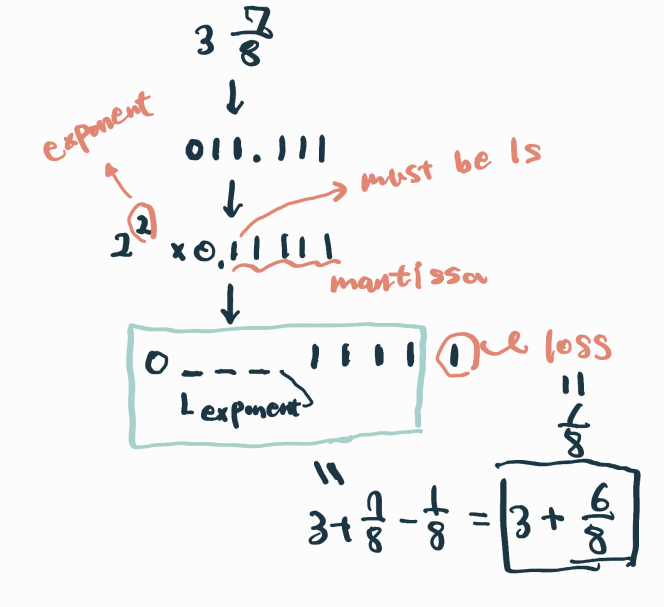 3 7/8
↓
exponent
011.111
↓
must be 1s
2^2 × 0.11111
mantissa
↓
0 _ _ _ 1 1 1 1 1 loss
exponent
=
1/8
=
3 + 7/8 - 1/8 = 3 + 6/8